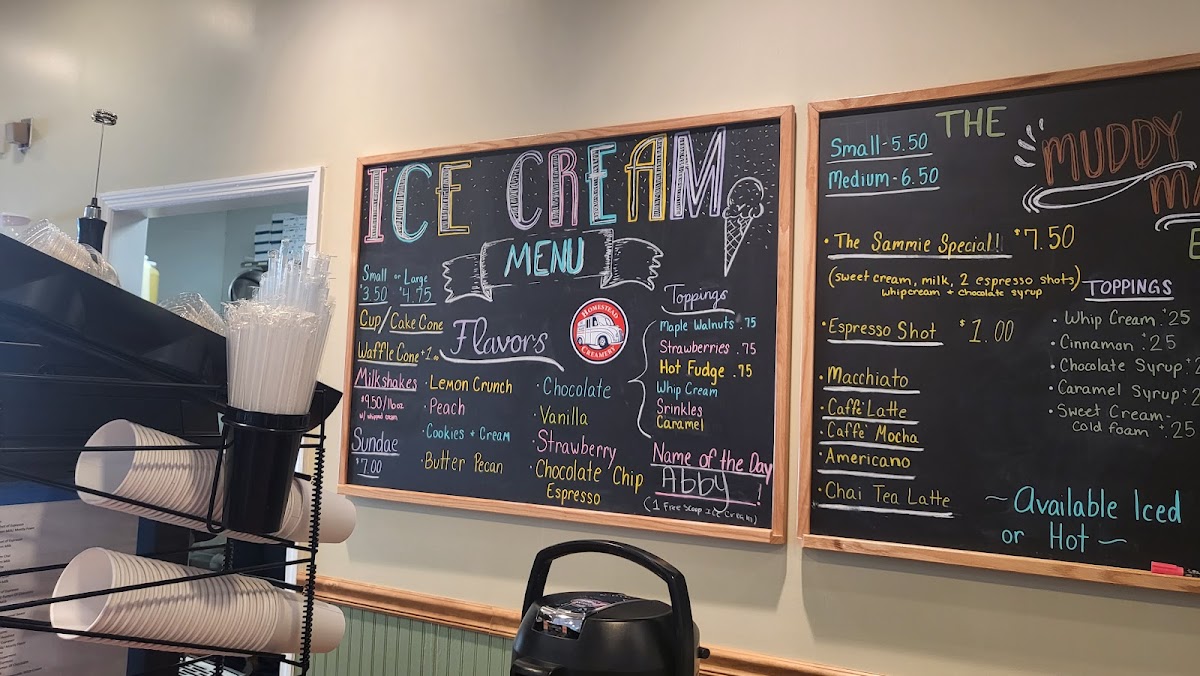 ICE CREAM
MENU
Small or Large
$3.50 $4.75
Cup/Cake Cone
Waffle Cone +1.00
Milkshakes
$9.50/16oz
w/ whipped cream
Sundae
$7.00
Flavors
· Lemon Crunch
· Peach
· Cookies + Cream
· Butter Pecan
· Chocolate
· Vanilla
· Strawberry
· Chocolate Chip
Espresso
HOMESTEAD
CREAMERY
Toppings
Maple Walnuts .75
Strawberries .75
Hot Fudge .75
Whip Cream
Srinkles
Caramel
Name of the Day
Abby!
(1 Free Scoop Ice Cream)
THE
MUDDY
Small - 5.50
Medium - 6.50
· The Sammie Special! $7.50
(sweet cream, milk, 2 espresso shots)
whipcream + chocolate syrup
· Espresso Shot $1.00
· Macchiato
· Caffè Latte
· Caffè Mocha
· Americano
· Chai Tea Latte
TOPPINGS
· Whip Cream .25
· Cinnamon .25
· Chocolate Syrup
· Caramel Syrup
· Sweet Cream-
Cold foam +.25
~ Available Iced
or Hot ~